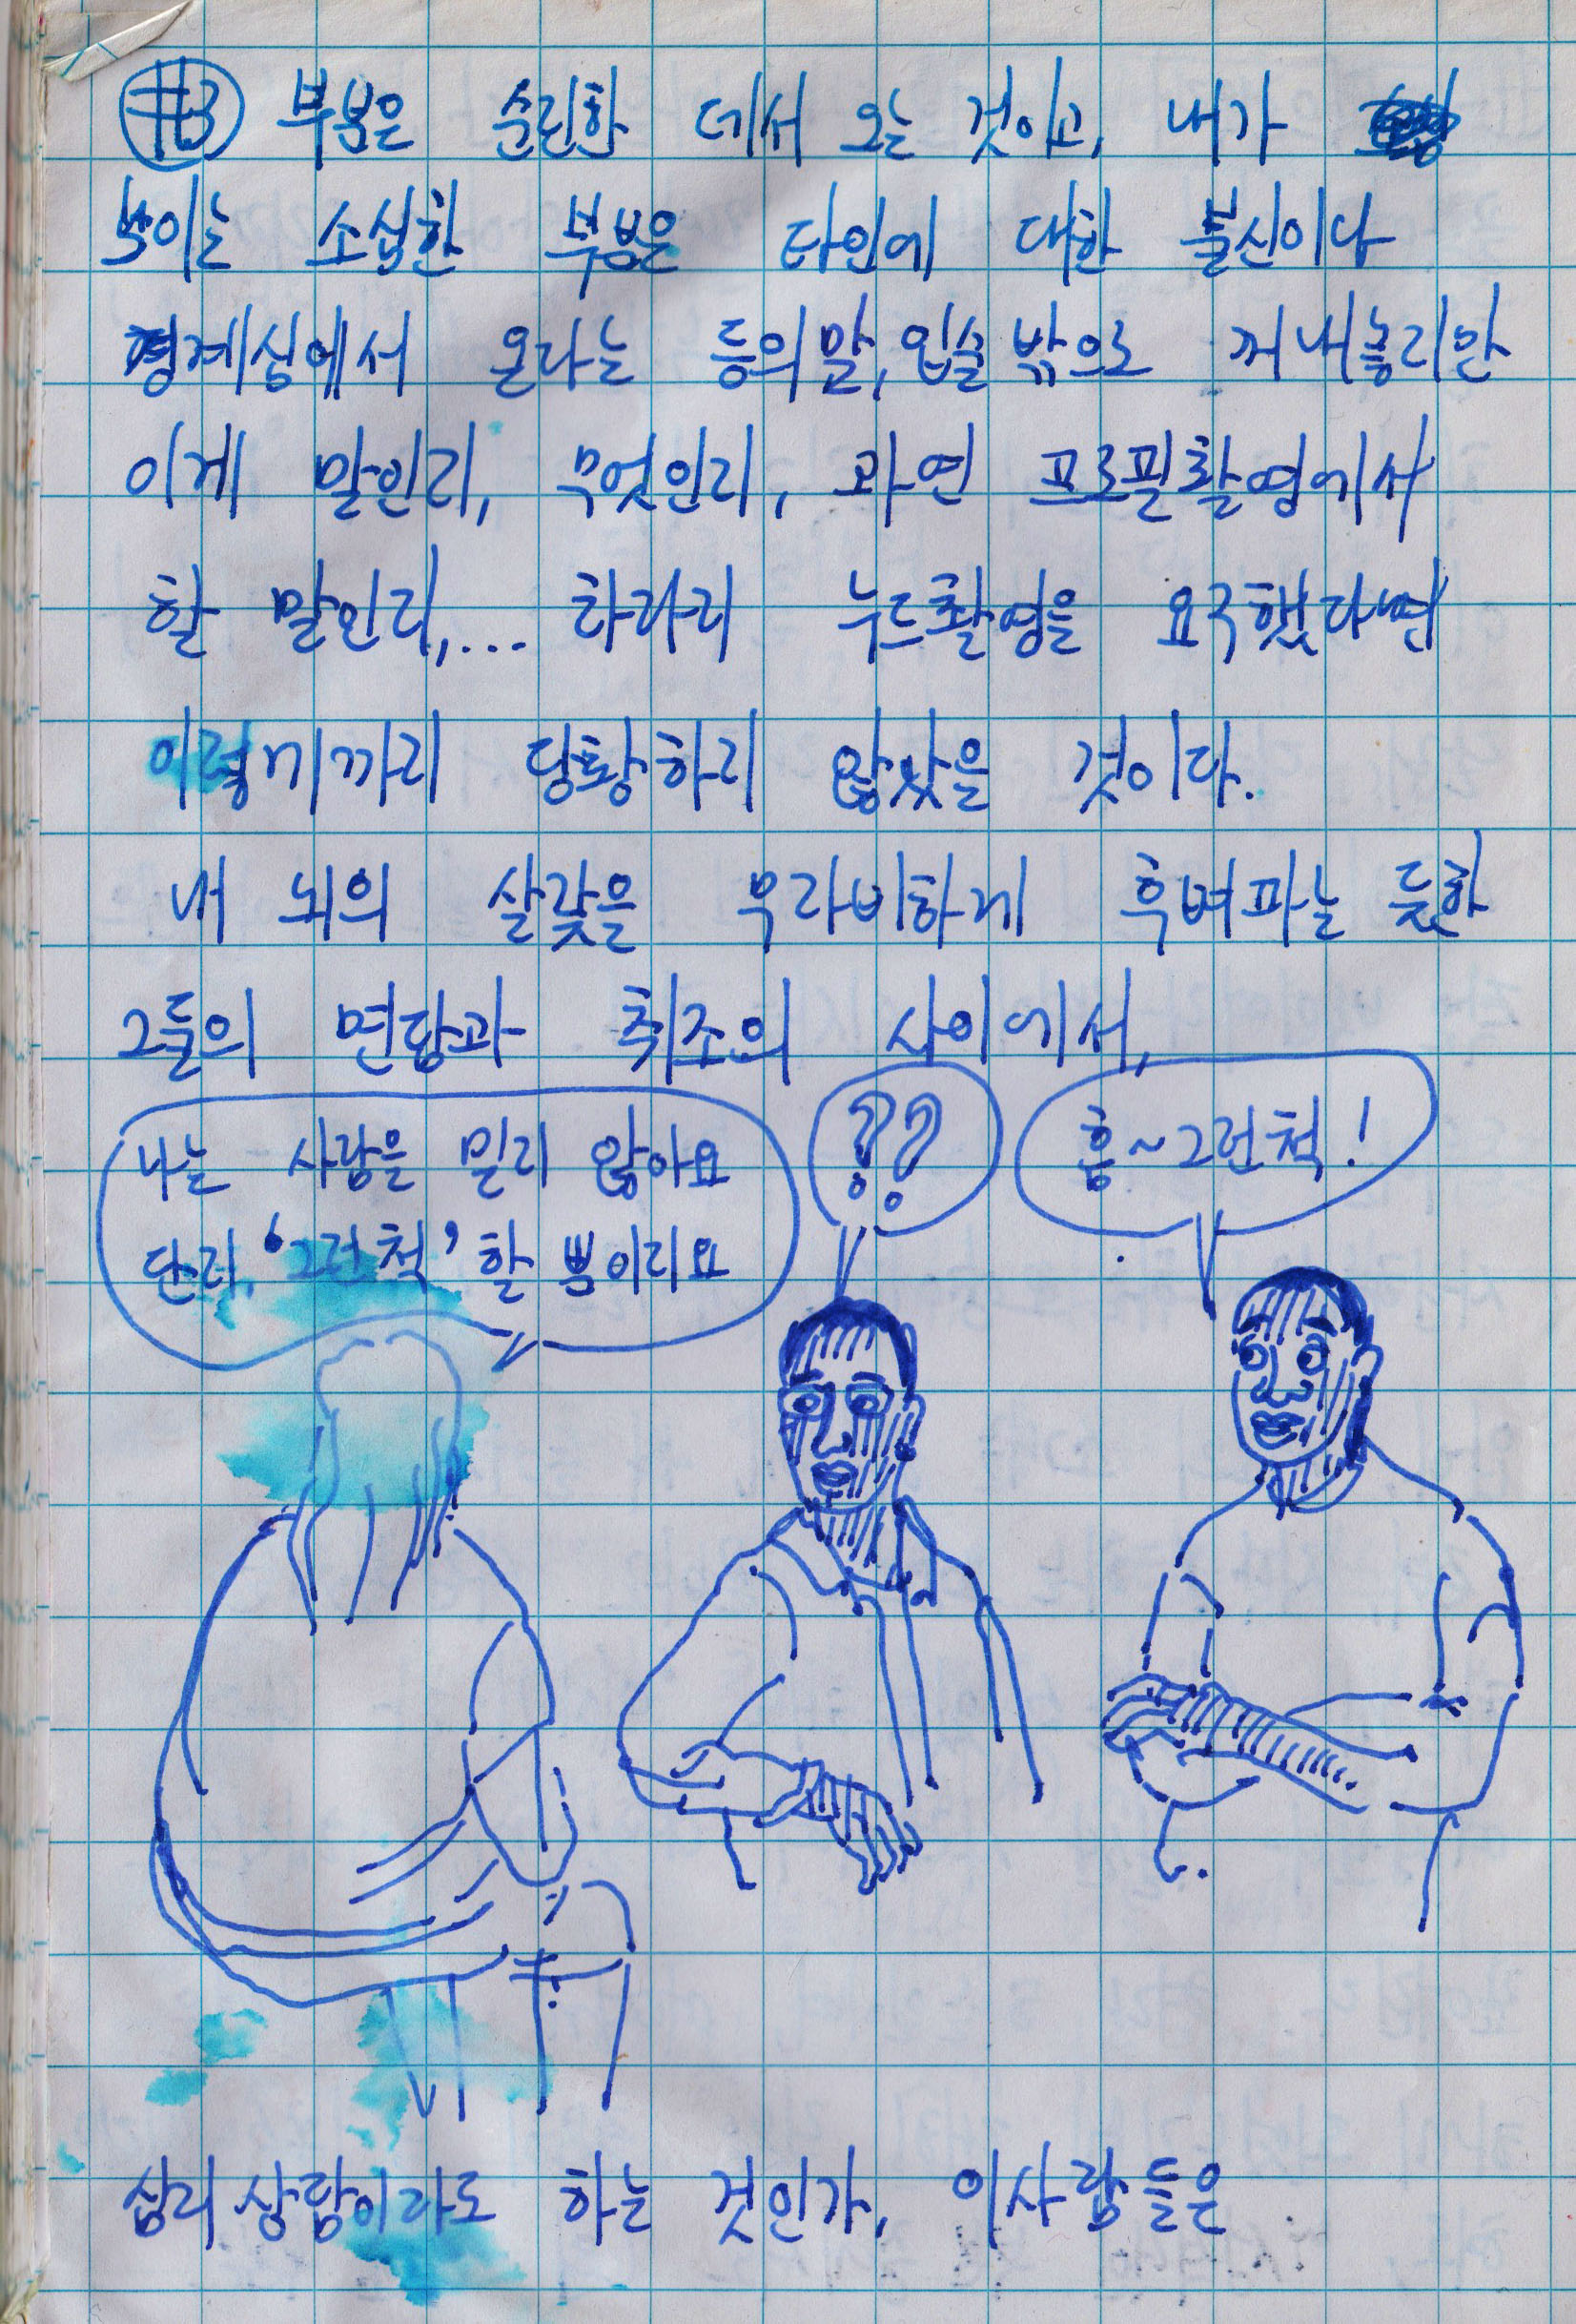 #3 부분은 순진한 데서 오는 것이고, 내가
보이는 소심한 부분은 타인에 대한 불신이다
경계심에서 온다는 등의 말, 입술 밖으로 꺼내놓지만
이게 말인지, 무엇인지, 과연 프로필촬영에서
할 말인지,... 차라리 누드촬영을 요구했다면
이렇게까지 당황하지 않았을 것이다.
내 뇌의 살갗을 무자비하게 후벼파는 듯한
그들의 면담과 취조의 사이에서,
나는 사람을 믿지 않아요
단지, '그런 척' 할 뿐이지요
??
흠~그런척!
심리상담이라도 하는 것인가, 이사람들은